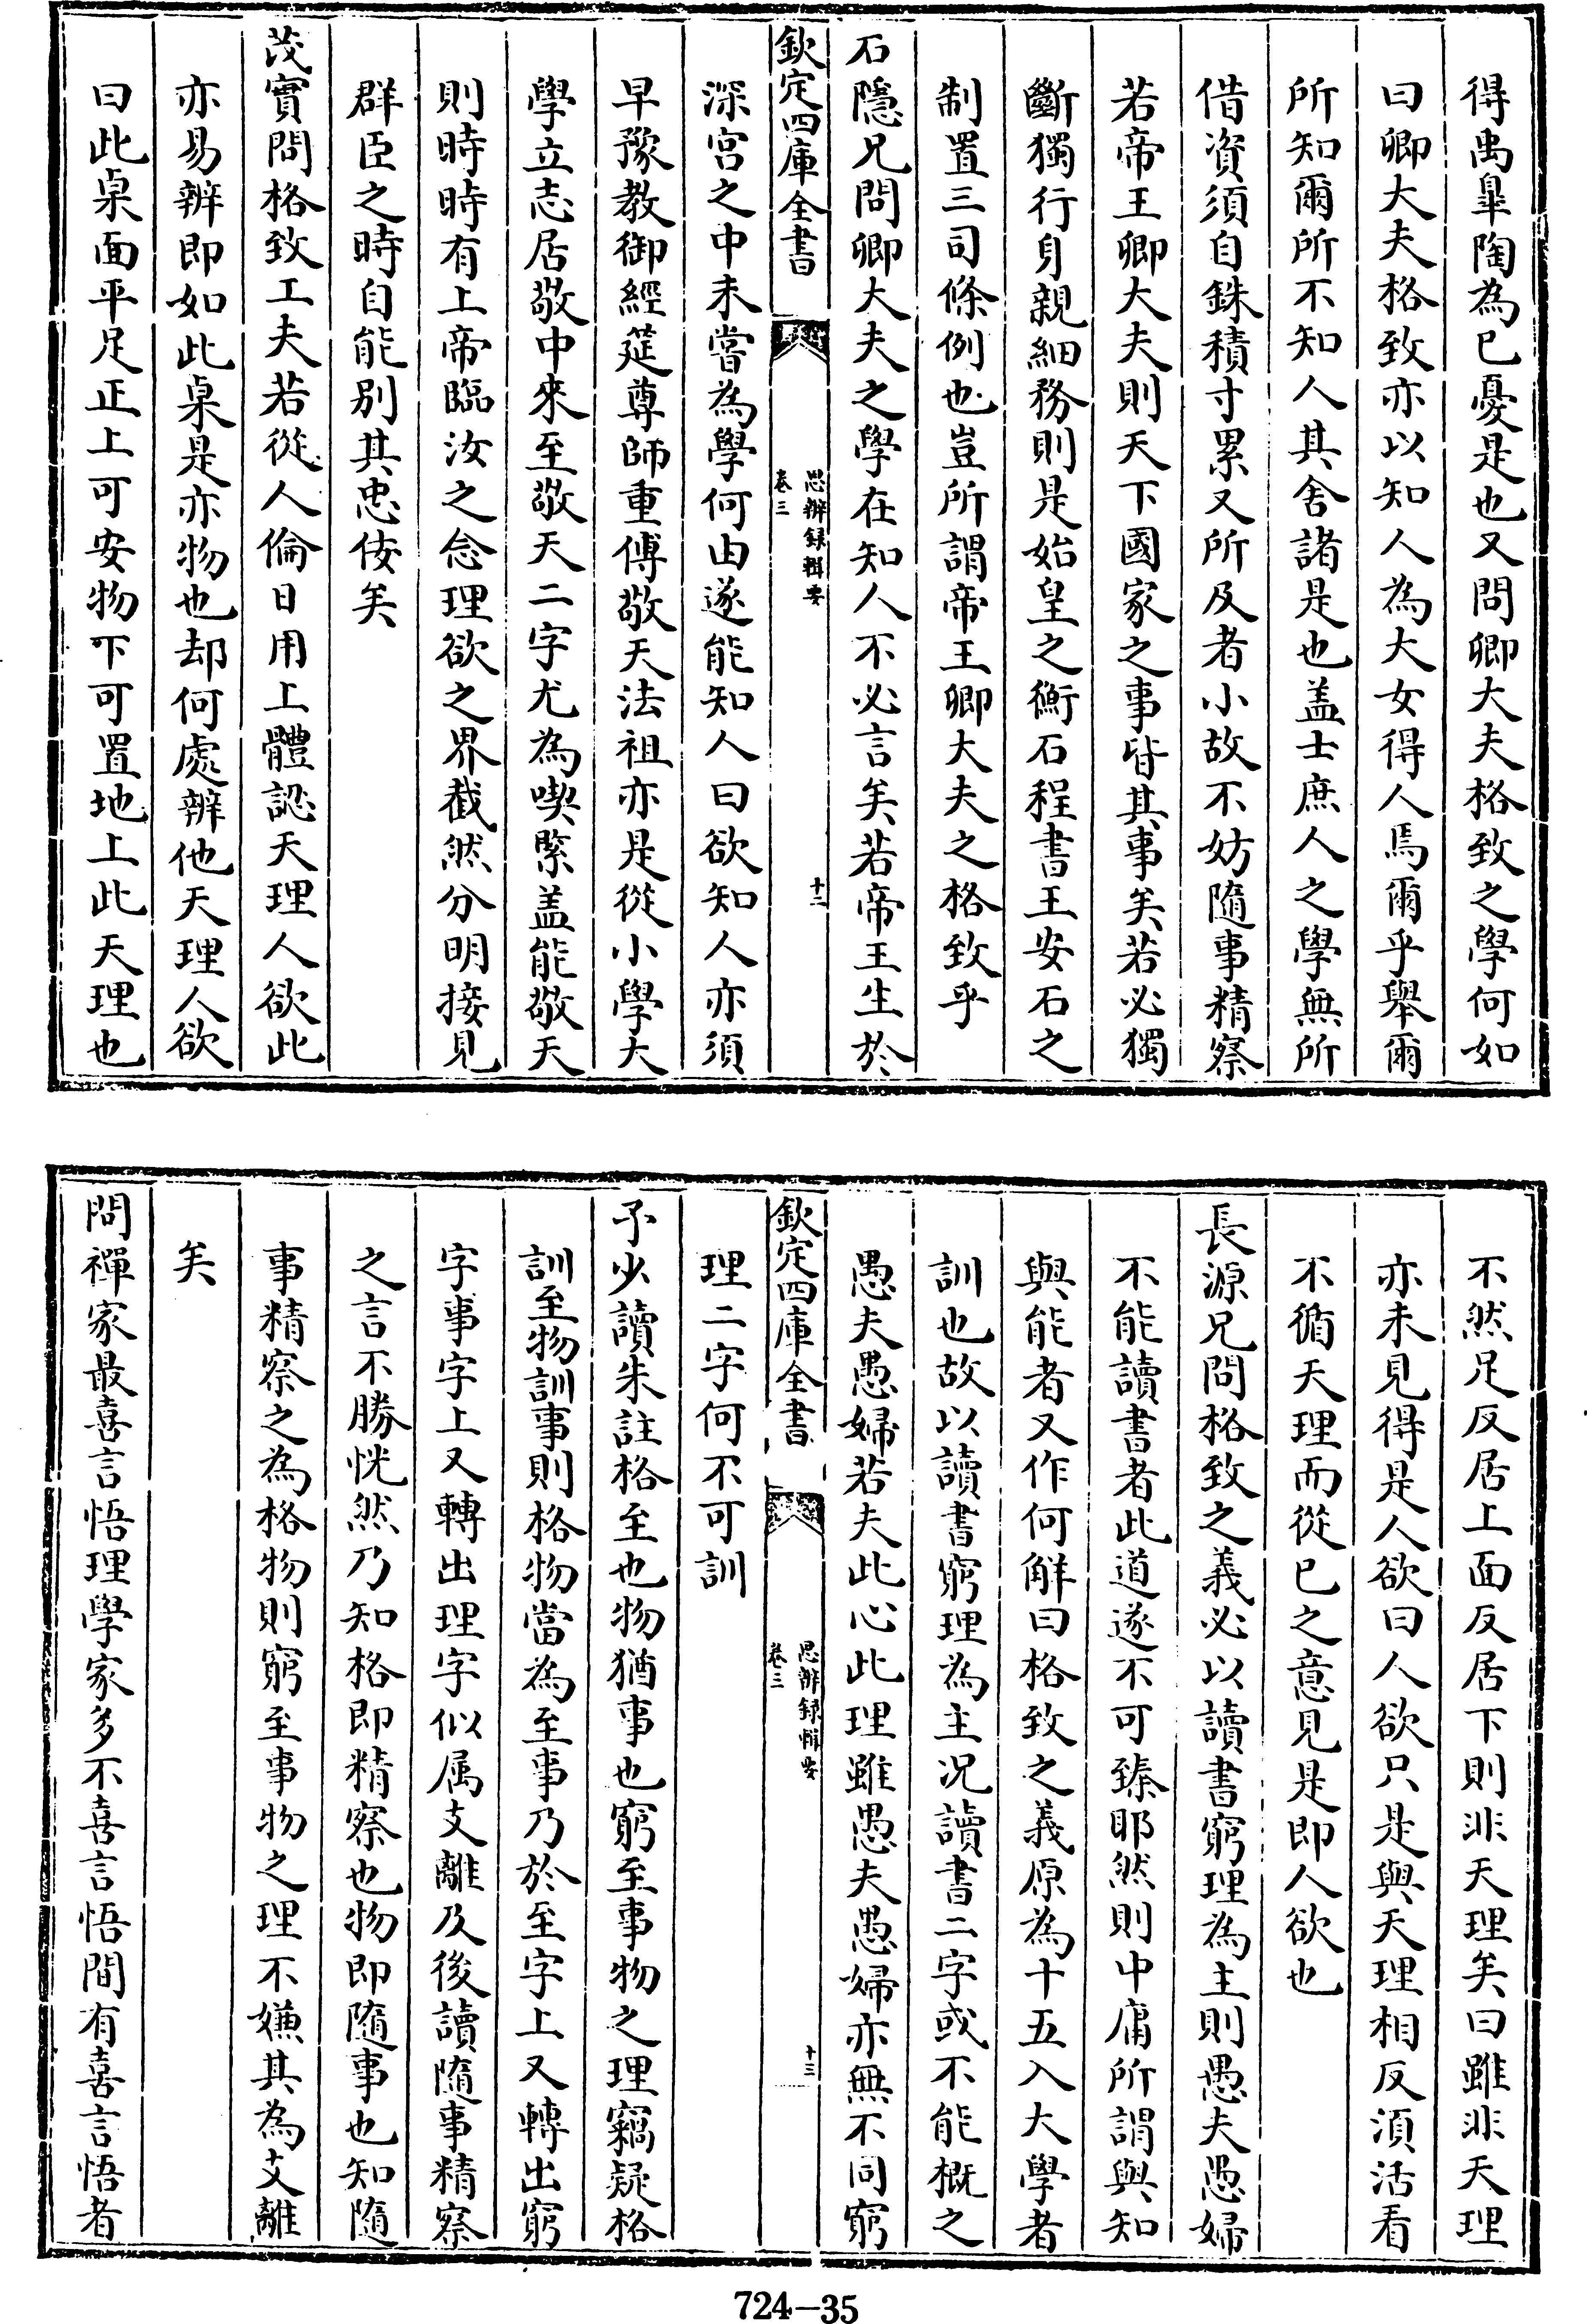 得禹臯陶為已憂是也又問卿大夫格致之學何如
曰卿大夫格致亦以知人為大女得人焉爾乎舉爾
所知爾所不知人其舍諸是也盖士庶人之學無所
借資須自銖積寸累又所及者小故不妨隨事精察
若帝王卿大夫則天下國家之事皆其事矣若必獨
斷獨行身親細務則是始皇之衡石程書王安石之
制置三司條例也豈所謂帝王卿大夫之格致乎
石隱兄問卿大夫之學在知人不必言矣若帝王生於
欽定四庫全書
思辨録輯要
卷三
十二
深宮之中未嘗為學何由遂能知人曰欲知人亦須
早豫教御經筵尊師重傅敬天法祖亦是從小學大
學立志居敬中來至敬天二字尤為喫緊盖能敬天
則時時有上帝臨汝之念理欲之界截然分明接見
群臣之時自能别其忠佞矣
茂實問格致工夫若從人倫日用上體認天理人欲此
亦易辨即如此桌是亦物也却何處辨他天理人欲
曰此桌面平足正上可安物下可置地上此天理也
不然足反居上面反居下則非天理矣曰雖非天理
亦未見得是人欲曰人欲只是與天理相反湏活看
不循天理而從已之意見是即人欲也
長源兄問格致之義必以讀書窮理為主則愚夫愚婦
不能讀書者此道遂不可臻耶然則中庸所謂與知
與能者又作何解曰格致之義原為十五入大學者
訓也故以讀書窮理為主况讀書二字或不能概之
愚夫愚婦若夫此心此理雖愚夫愚婦亦無不同窮
欽定四庫全書
思辨録輯要
卷三
十三
理二字何不可訓
予少讀朱註格至也物猶事也窮至事物之理竊疑格
訓至物訓事則格物當為至事乃於至字上又轉出窮
字事字上又轉出理字似属支離及後讀隨事精察
之言不勝恍然乃知格即精察也物即隨事也知隨
事精察之為格物則窮至事物之理不嫌其為支離
矣
問禪家最喜言悟理學家多不喜言悟間有喜言悟者
724-35